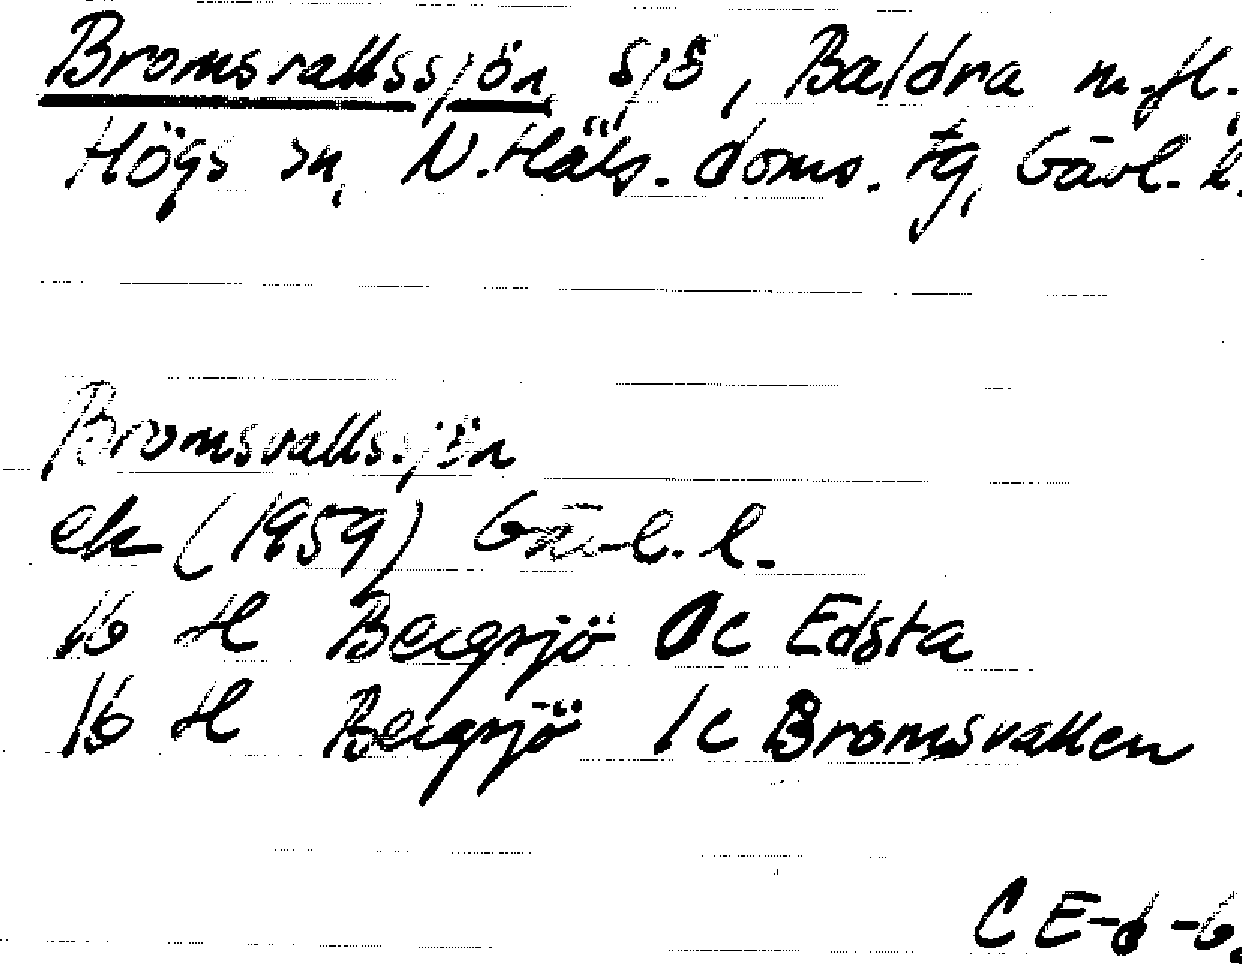 Bromsvallssjön, sjö, Baldra m.fl.,
Högs sn, N. Häls. doms. tg, Gävl. l.
Bromsvallssjön
ek (1959) Gävl. l.
16 H Bergsjö 0c Edsta
16 H Bergsjö 1c Bromsvallen
CE-6-6